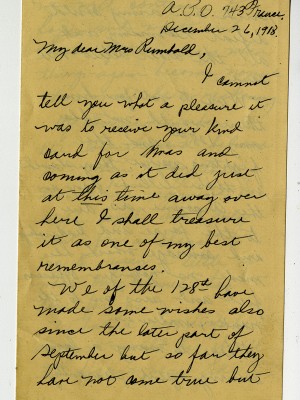 A.P.O. 743 France.
December 26, 1918.
My dear Mrs Rumbold,
I cannot
tell you what a pleasure it
was to receive your kind
card for Xmas and
coming as it did just
at this time away over
here I shall treasure
it as one of my best
remembranses.
We of the 128th have
made some wishes also
since the later part of
September but so far they
have not come true but